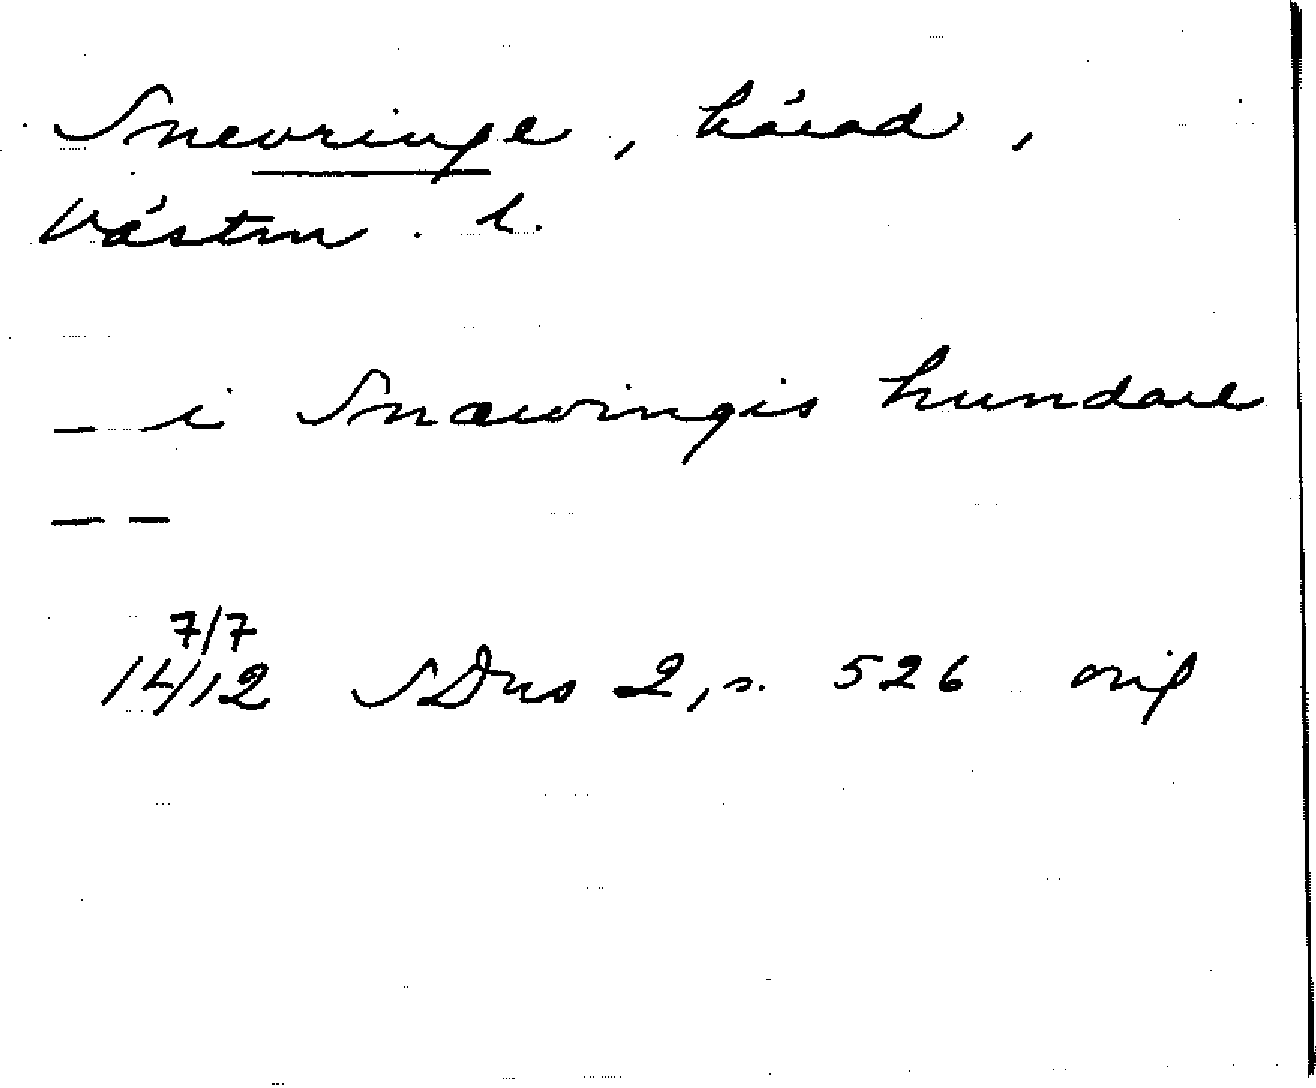 Snevringe, härad,
Västm. l.
- i Snæwringis hundare
- -
7/7
14/12 SDns 2, s. 526 orig